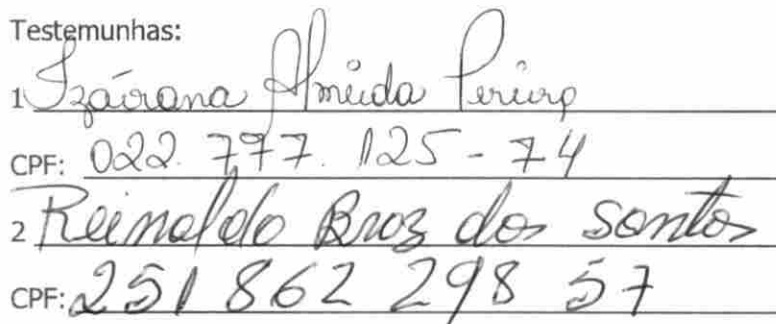 Testemunhas:
1 Izáirana Almeida Pereira
CPF: 022. 797. 125 - 74
2 Reinaldo Braz dos santos
CPF: 251 862 298 57